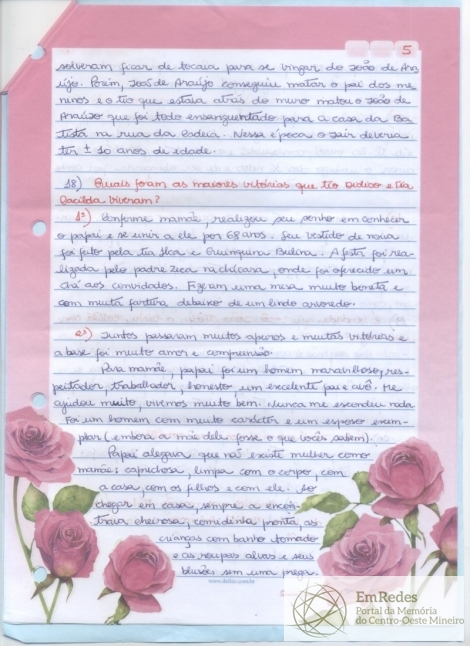 5
solveram ficar de tocaia para se vingar do João de Ara
újo. Porém, João de Araújo conseguiu matar o pai dos me
ninos e o tio que estava atrás do muro matou o João de
Araújo que foi todo ensanguentado para a casa da Ba
tista na rua da Cadeia. Nessa época o Jair deveria
ter ± 10 anos de idade.
18) Quais foram as maiores vitórias que tio Qudico e tia
Dacilda viveram?
1º) Conforme mamãe, realizou seu sonho em conhecer
o papai e se unir a ele por 68 anos. Seu vestido de noiva
foi feito pela tia Ilca e Quinquina Bulina. A festa foi rea-
lizada pelo padre Zeca na chácara, onde foi oferecido um
chá aos convidados. Fizeram uma mesa muito bonita e
com muita fartura debaixo de um lindo arvoredo.
2º) Juntos passaram muitos apuros e muitas vitórias e
a base foi muito amor e compreensão.
Para mamãe, papai foi um homem maravilhoso, res-
peitador, trabalhador, honesto, um excelente pai e avô. Me
ajudou muito, vivemos muito bem. Nunca me escondeu nada
Foi um homem com muito carácter e um esposo exem-
plar (embora a mãe dele fosse o que vocês sabem).
Papai alegava que não existe mulher como
mamãe: caprichosa, limpa com o corpo, com
a casa, com os filhos e com ele. Ao
chegar em casa, sempre a encon
trava cheirosa, comidinha pronta, as
crianças com banho tomado
e as roupas alvas e seus
blusões sem uma prega.
EmRedes
Portal da Memória
do Centro-Oeste Mineiro